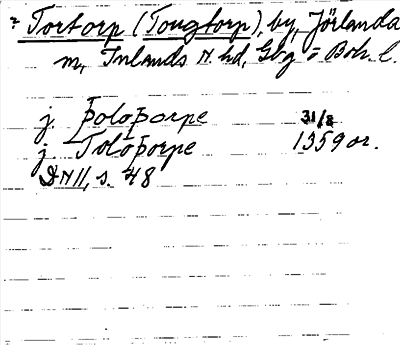 Tortorp (Tougtorp), by, Jörlanda
m, Inlands N. hd, Gbg o Boh. l.
j. Þoloþorpe 31/8
j. Toloþorpe 1359 or.
DN II, s. 48